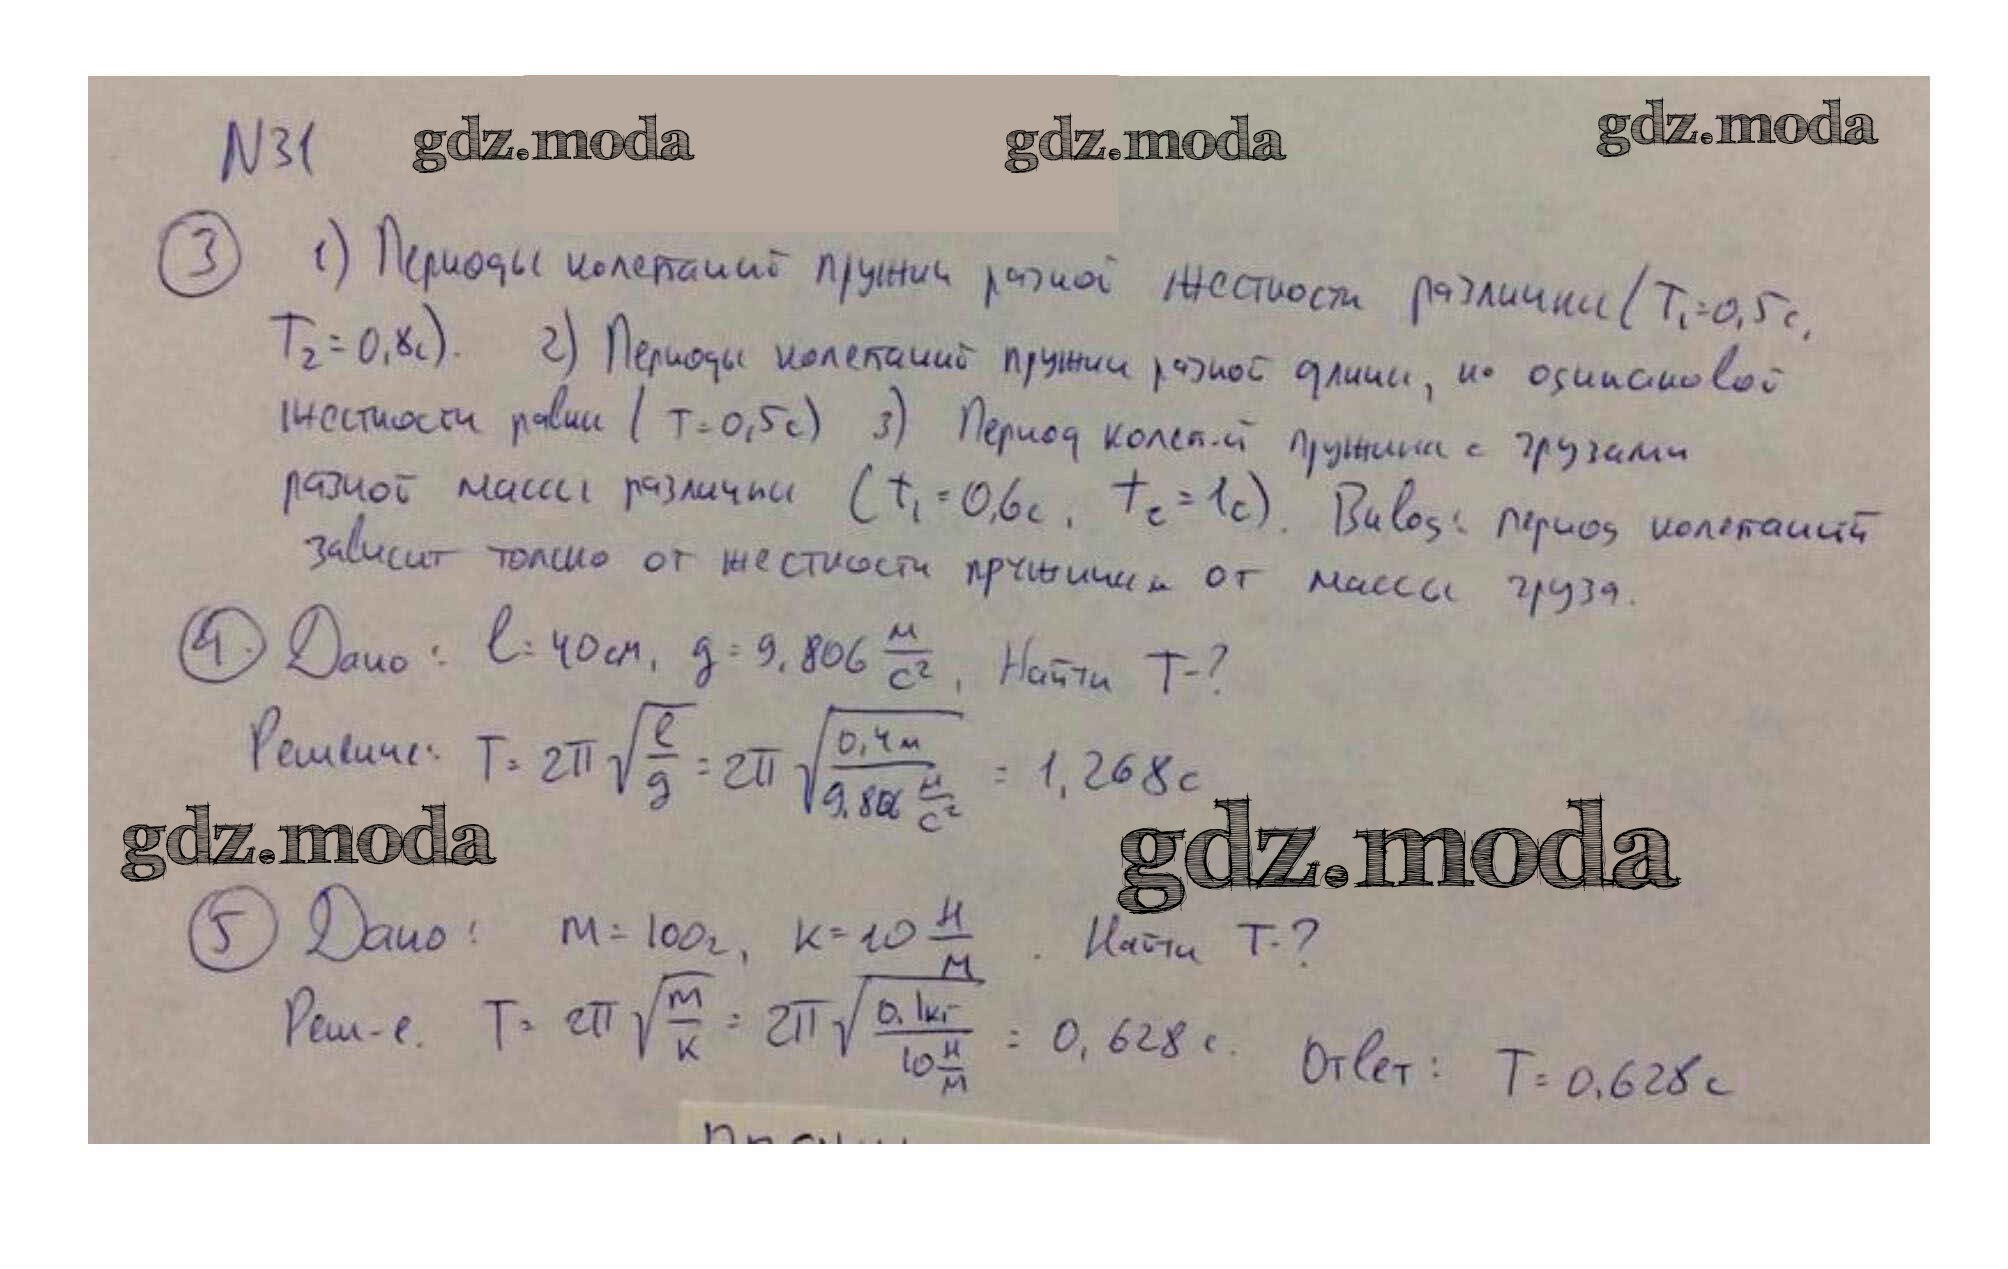 N31 gdz.moda gdz.moda gdz.moda
3 1) Периоды колебаний пружин разной жесткости различны (T₁=0,5с,
T₂=0,8с). 2) Периоды колебаний пружин разной длины, но одинаковой
жесткости равны (T=0,5с) 3) Период колеб-й пружины с грузами
разной массы различны (t₁=0,6с, t₂=1с). Вывод: период колебаний
зависит только от жесткости пружины и от массы груза.
4. Дано: l=40см, g=9,806 м/с², Найти T-?
Решение: T=2π√(l/g)=2π√(0,4м/9,806 м/с²) = 1,268с
gdz.moda gdz.moda
5 Дано: m=100г, k=10 Н/м. Найти T-?
Реш-е. T=2π√(m/k)=2π√(0,1кг/10 Н/м) = 0,628с. Ответ: T=0,628с